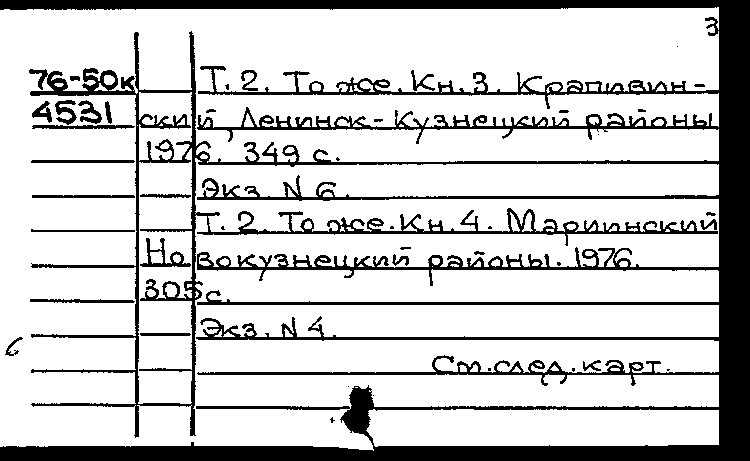 3
76-50к Т. 2. То же. Кн. 3. Крапивин-
4531 ский, Ленинск-Кузнецкий районы
1976. 349 с.
Экз. N 6.
Т. 2. То же. Кн. 4. Мариинский
Новокузнецкий районы. 1976.
305 с.
Экз. N 4.
6
См. след. карт.